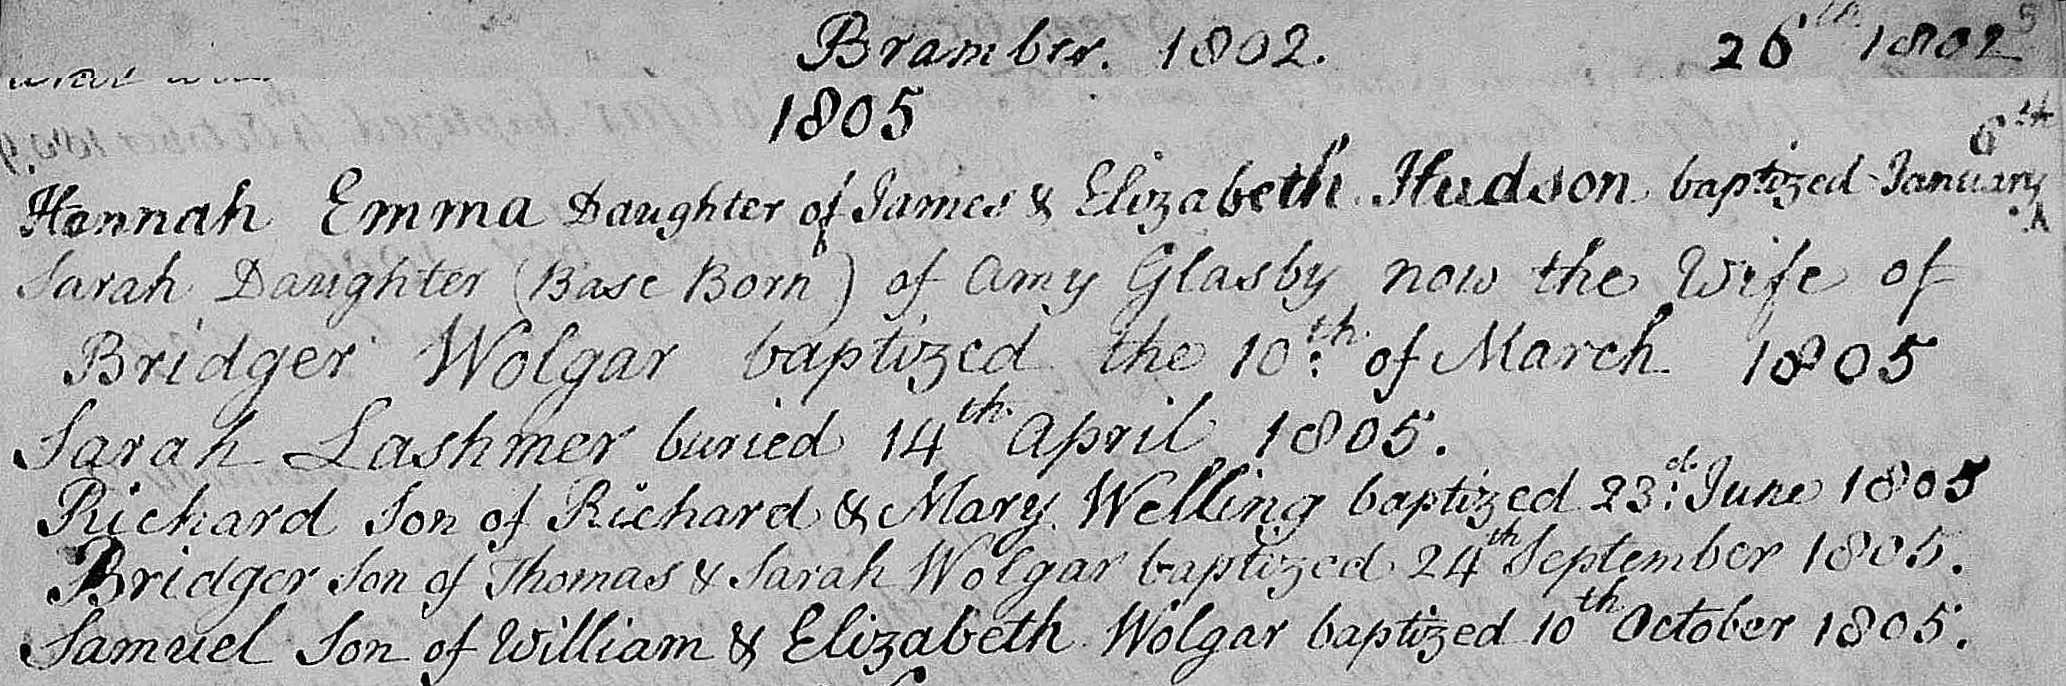 Bramber. 1802. 26th 1802
1805
6th
Hannah Emma Daughter of James & Elizabeth Hudson baptized January
Sarah Daughter (Base Born) of Amy Glasby now the Wife of
Bridger Wolgar baptized the 10th of March 1805
Sarah Lashmer buried 14th April 1805.
Richard Son of Richard & Mary Welling baptized 23d June 1805
Bridger Son of Thomas & Sarah Wolgar baptized 24th September 1805.
Samuel Son of William & Elizabeth Wolgar baptized 10th October 1805.